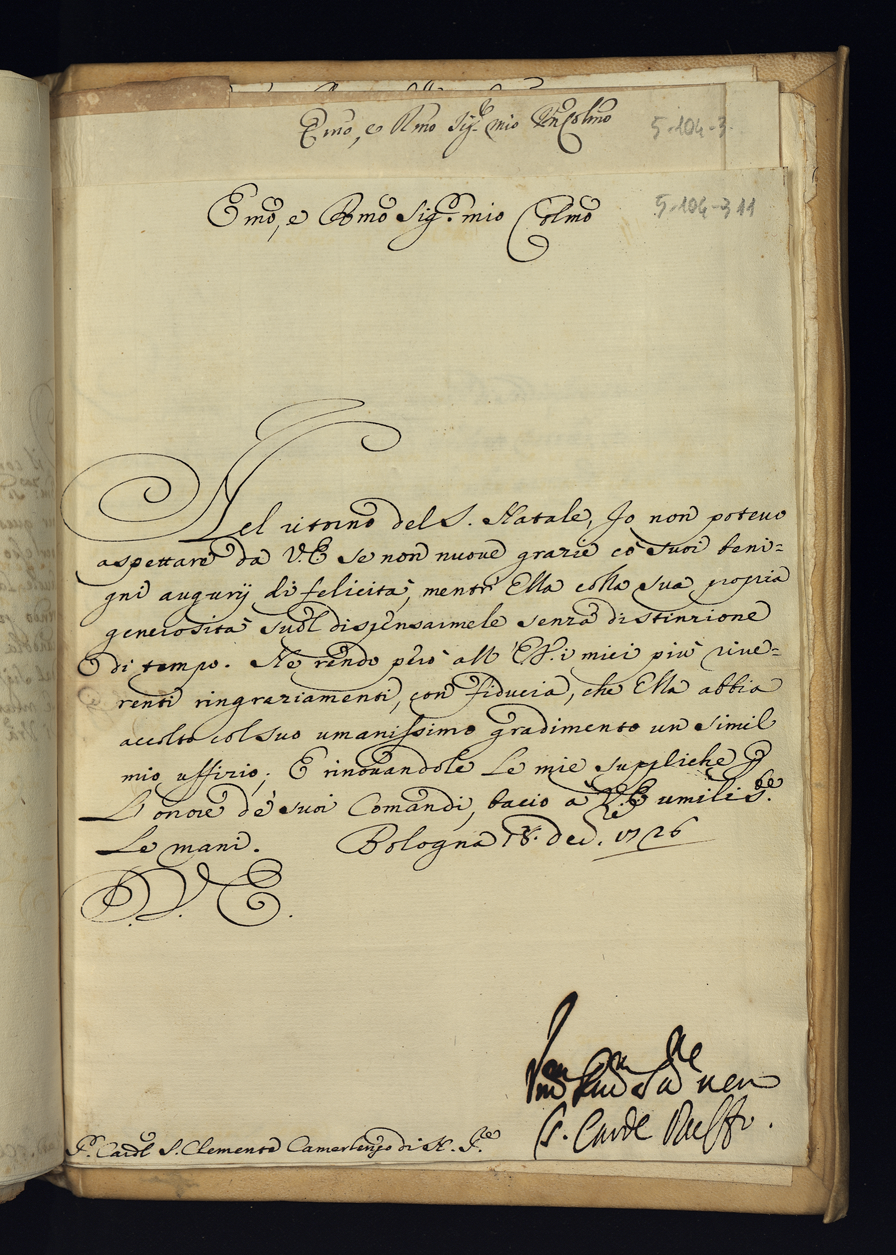 Emo, e Rmo Sig.r mio Pn Colmo
5-104-3
Emo, e Rmo Sig.r mio Colmo
5-104-311
Nel ritorno del S. Natale, Io non potevo
aspettare da V.E se non nuove grazie co' suoi beni=
gni augurij di felicità, mentr' Ella colla sua propria
generosità suol dispensarmele senza distinzione
di tempo. Ne rendo però all' E.V. i miei più rive=
renti ringraziamenti, con fiducia, che Ella abbia
accolto col suo umanissimo gradimento un simil
mio uffizio; E rinovandole le mie suppliche p
L'onore de' suoi Comandi, bacio a V.E umilis.te
Le mani. Bologna 18. dec. 1726
D. V. E.
ser
S. Cardl Ruffo.
S.r Cardl S. Clemente Camerlengo di S.